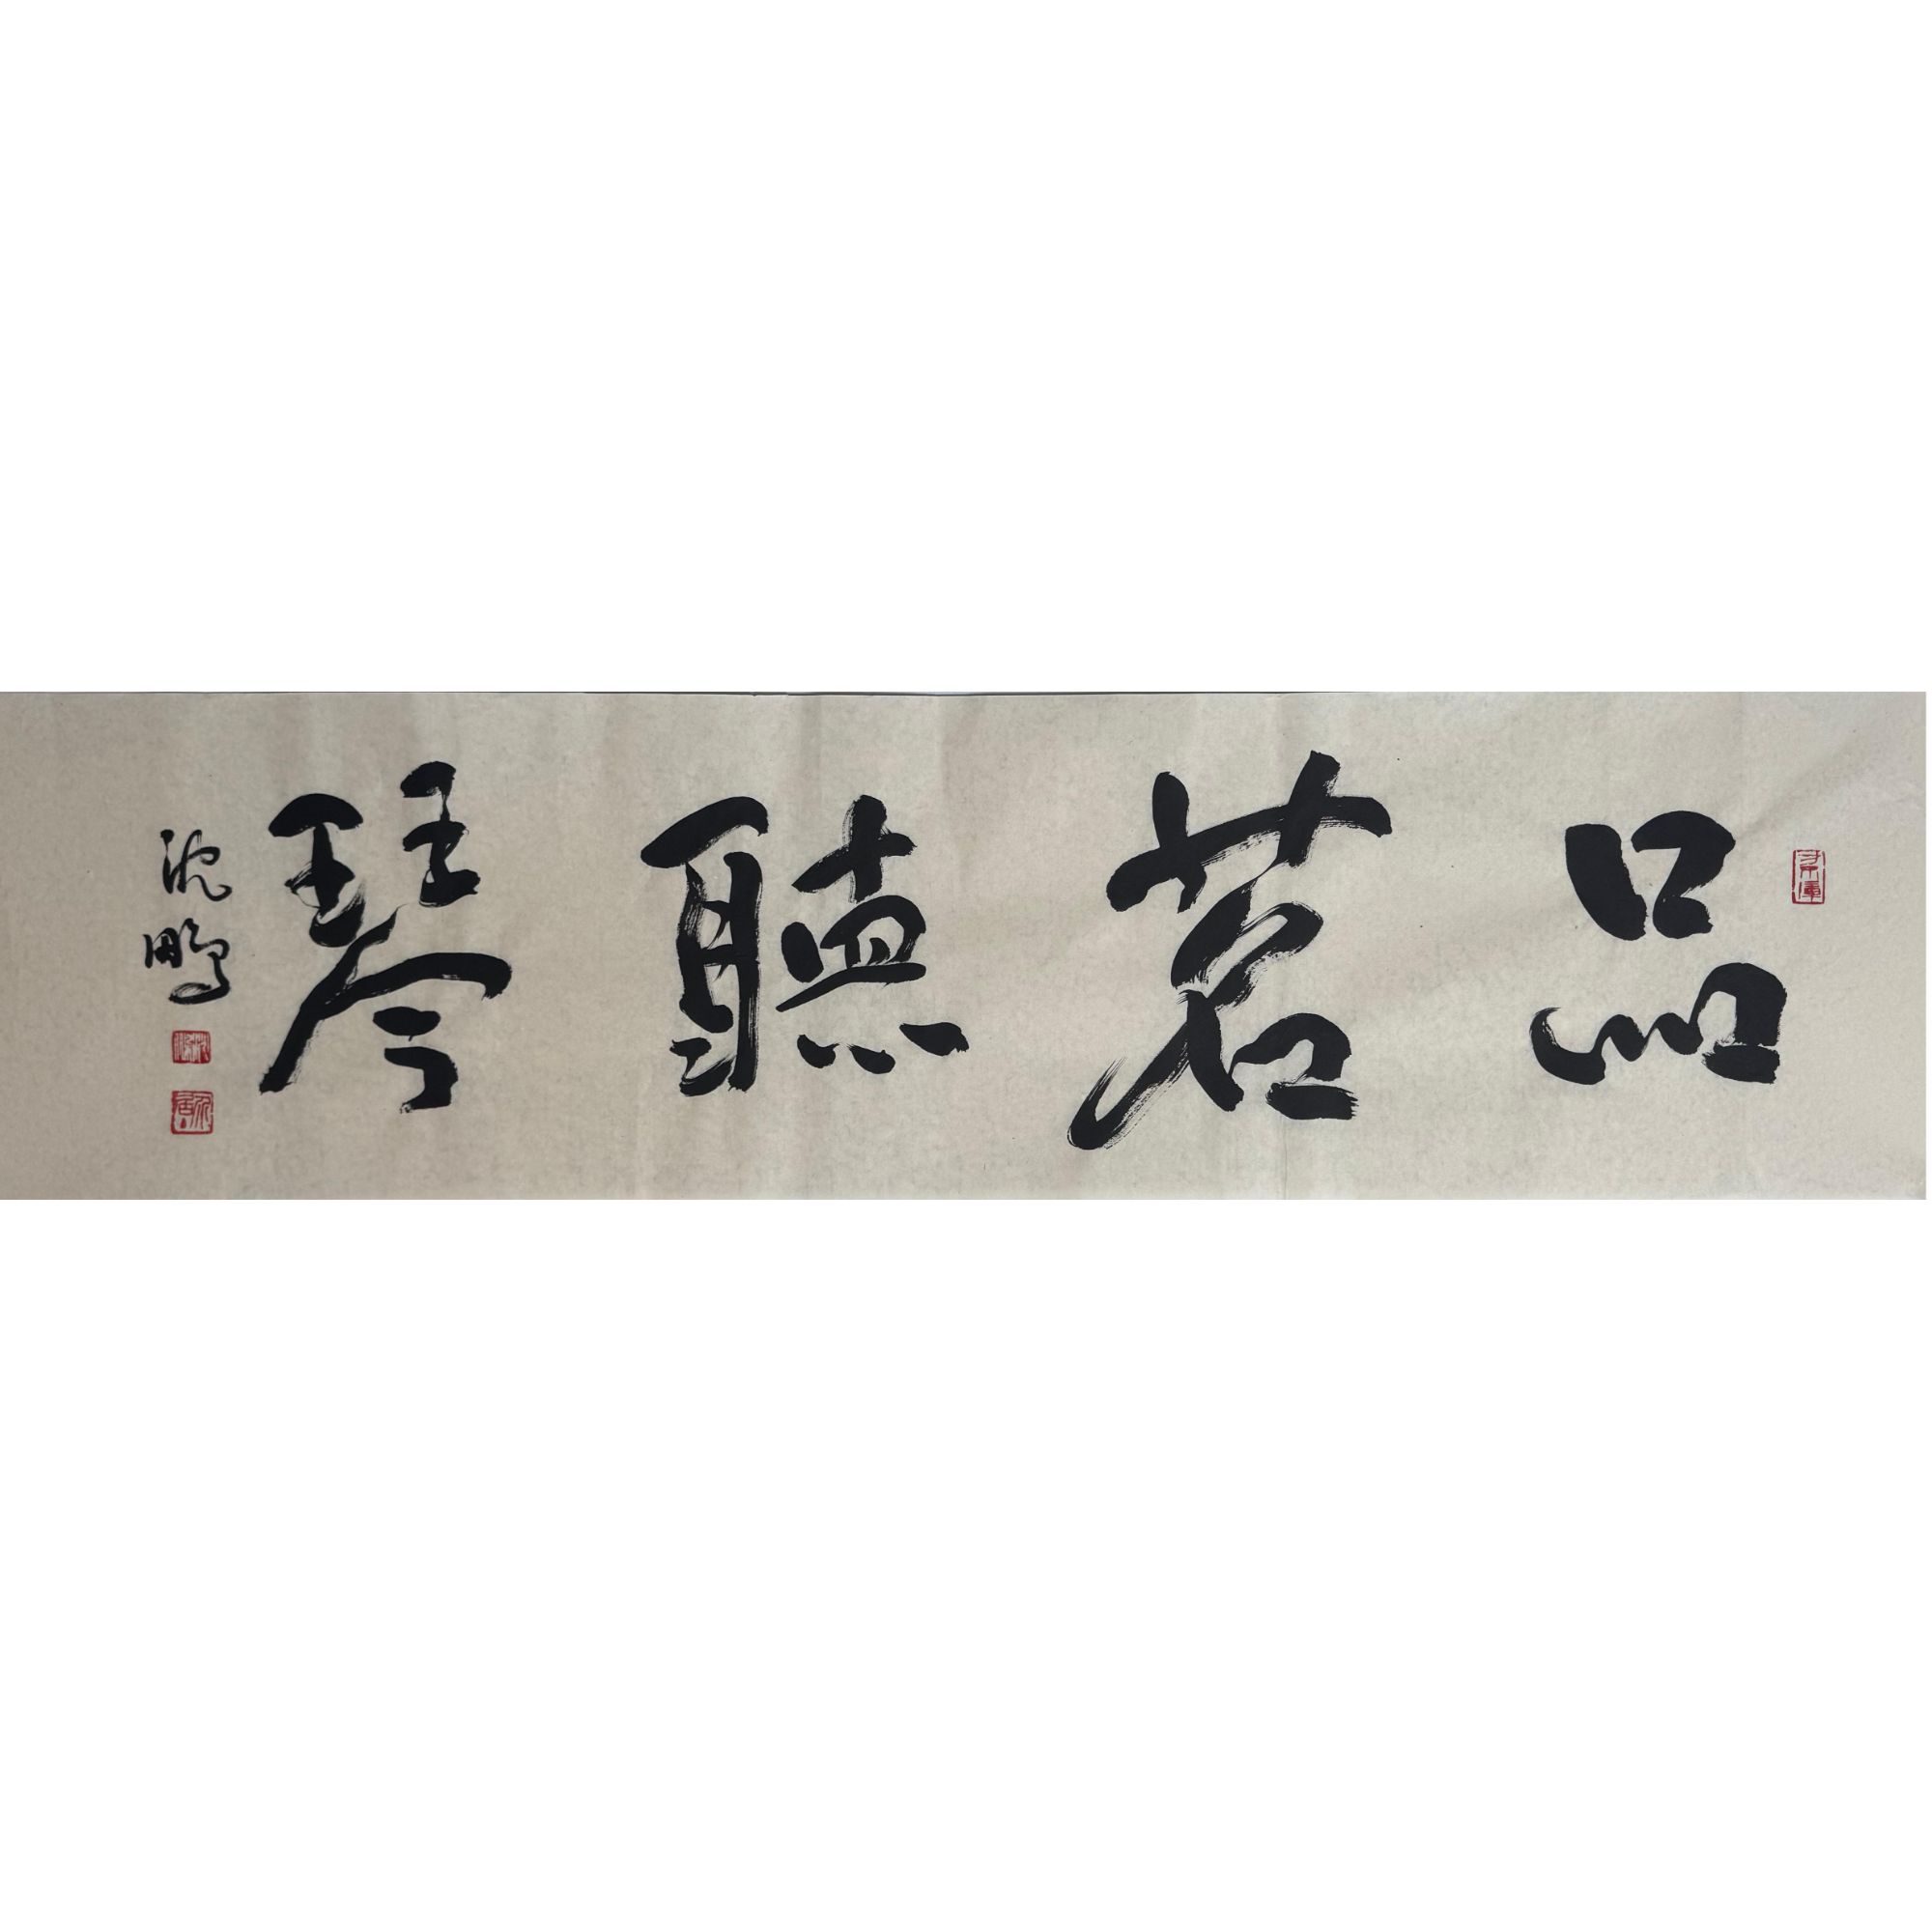 品茗聽琴
沈鵬